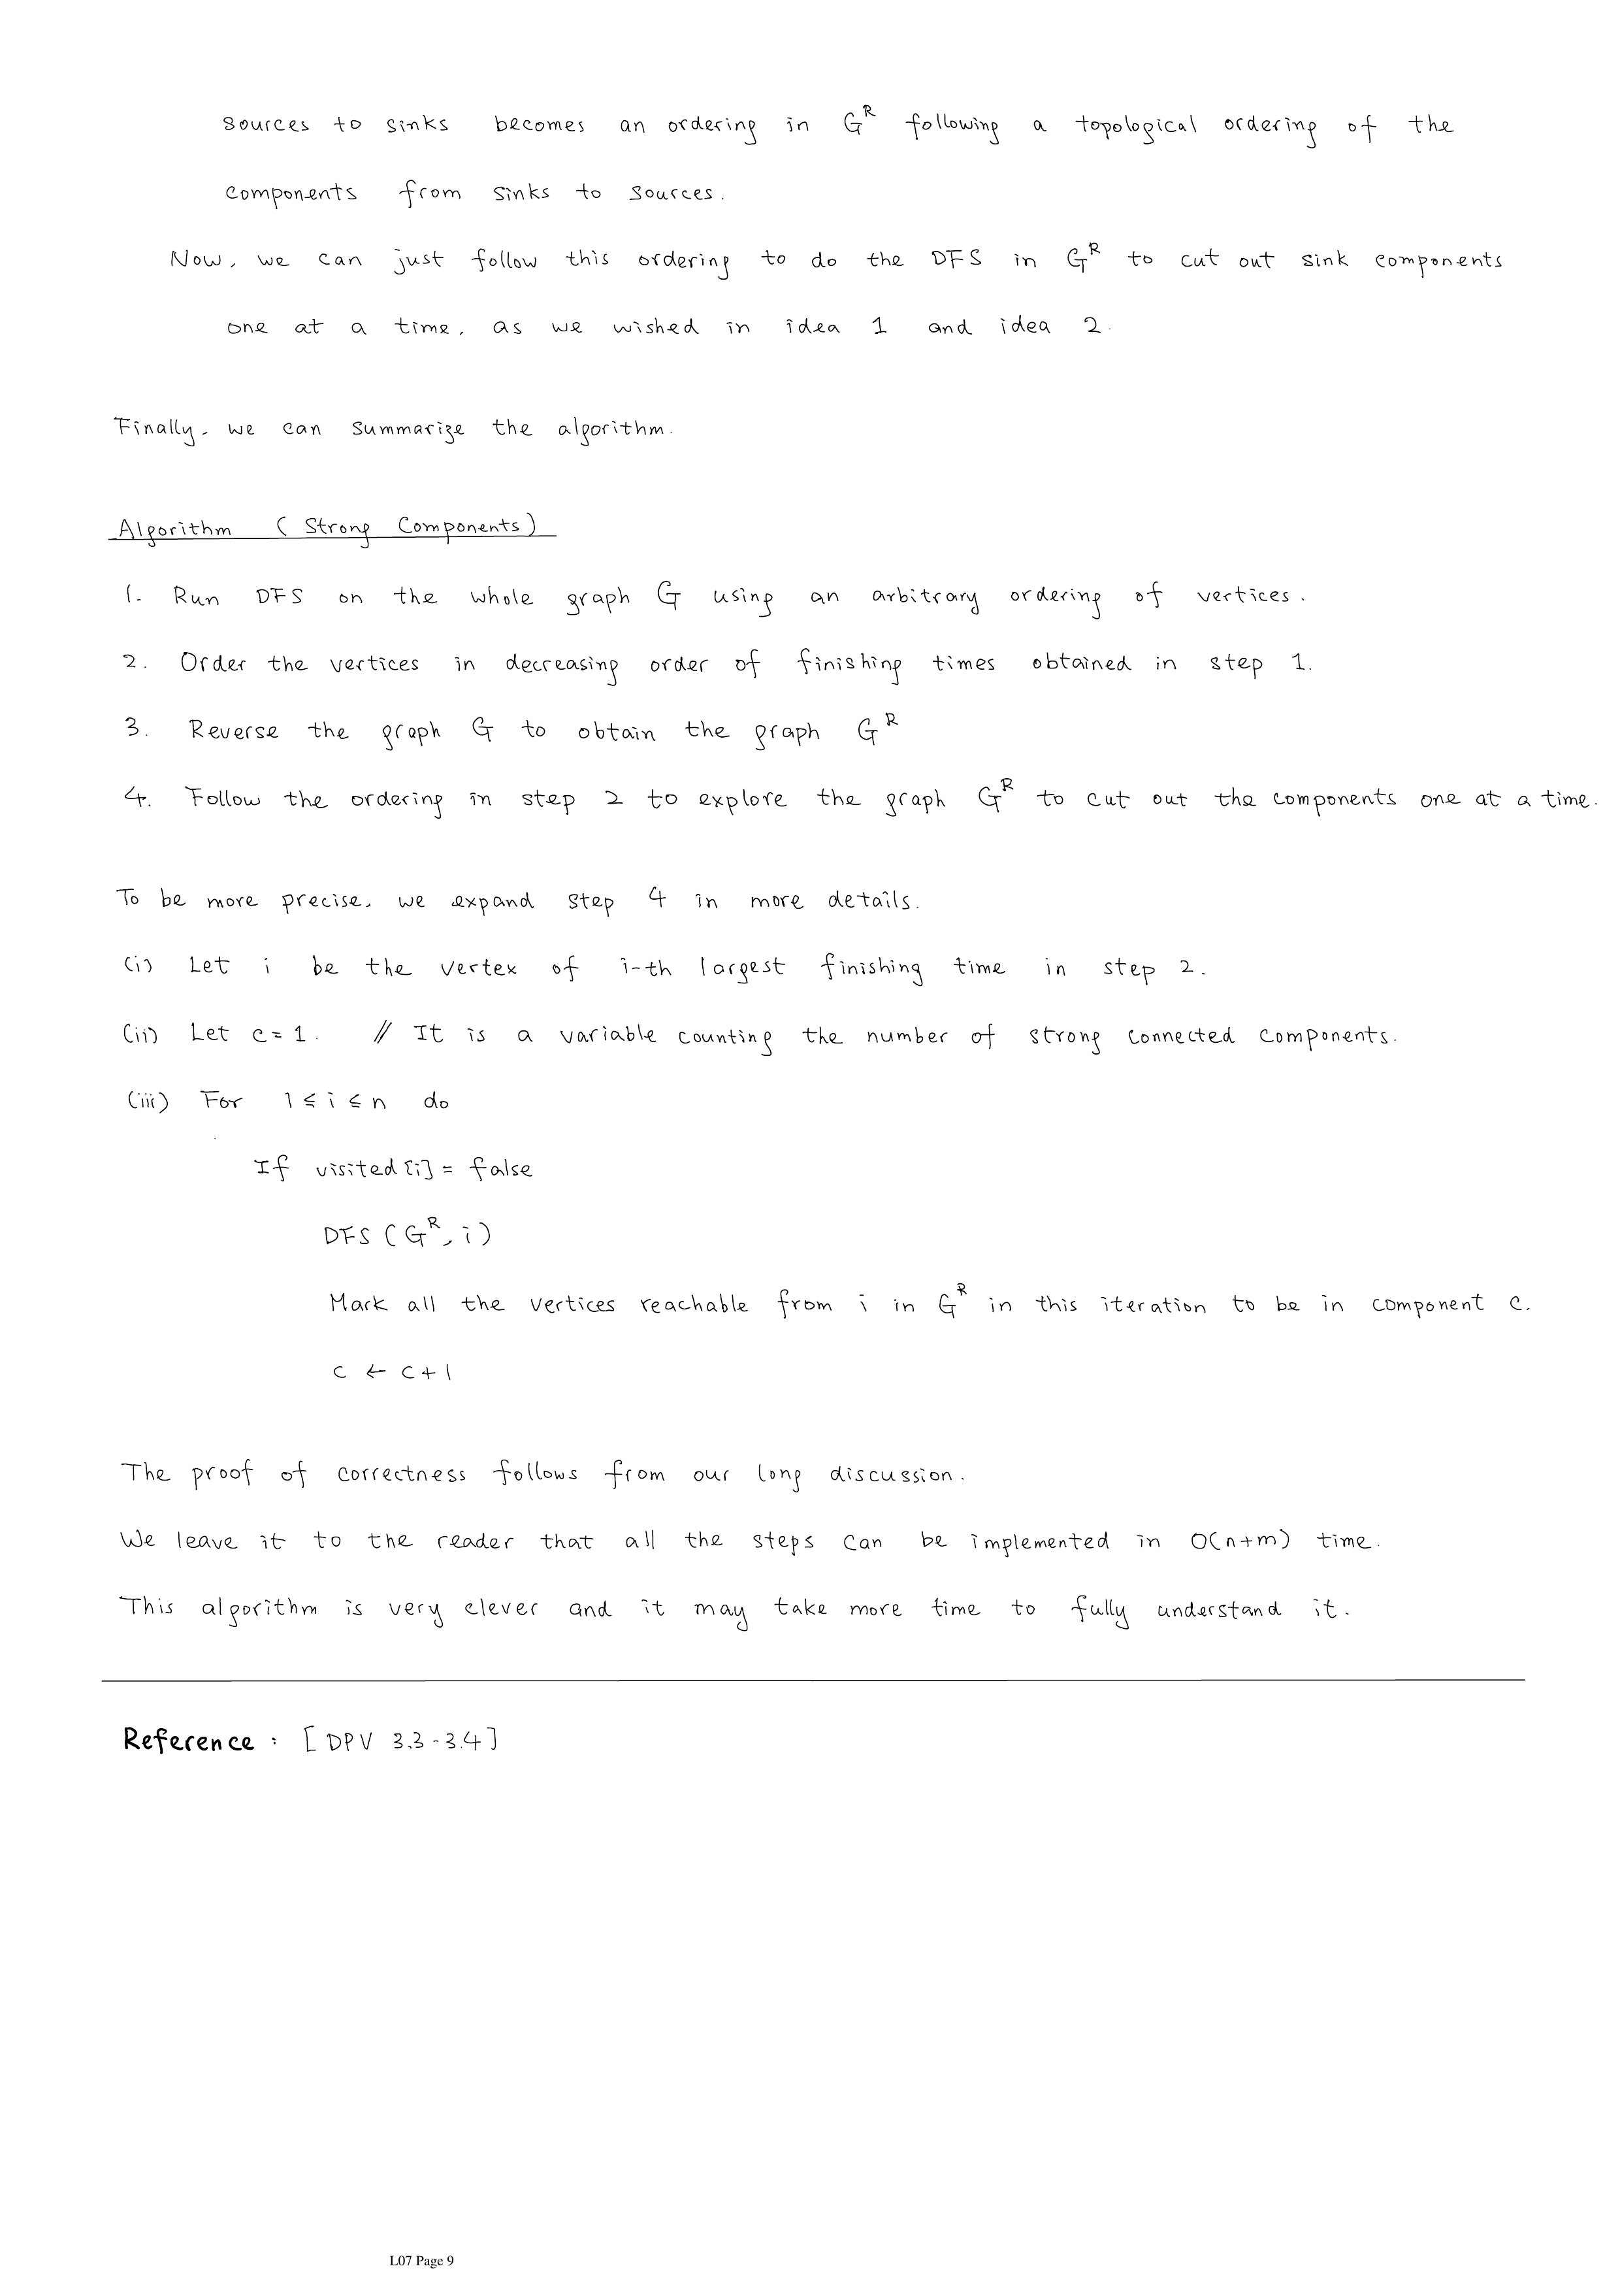 sources to sinks becomes an ordering in G^R following a topological ordering of the
components from sinks to sources.
Now, we can just follow this ordering to do the DFS in G^R to cut out sink components
one at a time, as we wished in idea 1 and idea 2.
Finally, we can summarize the algorithm.
Algorithm (Strong Components)
1. Run DFS on the whole graph G using an arbitrary ordering of vertices.
2. Order the vertices in decreasing order of finishing times obtained in step 1.
3. Reverse the graph G to obtain the graph G^R
4. Follow the ordering in step 2 to explore the graph G^R to cut out the components one at a time.
To be more precise, we expand step 4 in more details.
(i) Let i be the vertex of i-th largest finishing time in step 2.
(ii) Let c = 1. // It is a variable counting the number of strong connected components.
(iii) For 1 ≤ i ≤ n do
If visited[i] = false
DFS (G^R, i)
Mark all the vertices reachable from i in G^R in this iteration to be in component c.
c ← c+1
The proof of correctness follows from our long discussion.
We leave it to the reader that all the steps can be implemented in O(n+m) time.
This algorithm is very clever and it may take more time to fully understand it.
Reference : [DPV 3.3-3.4]
L07 Page 9